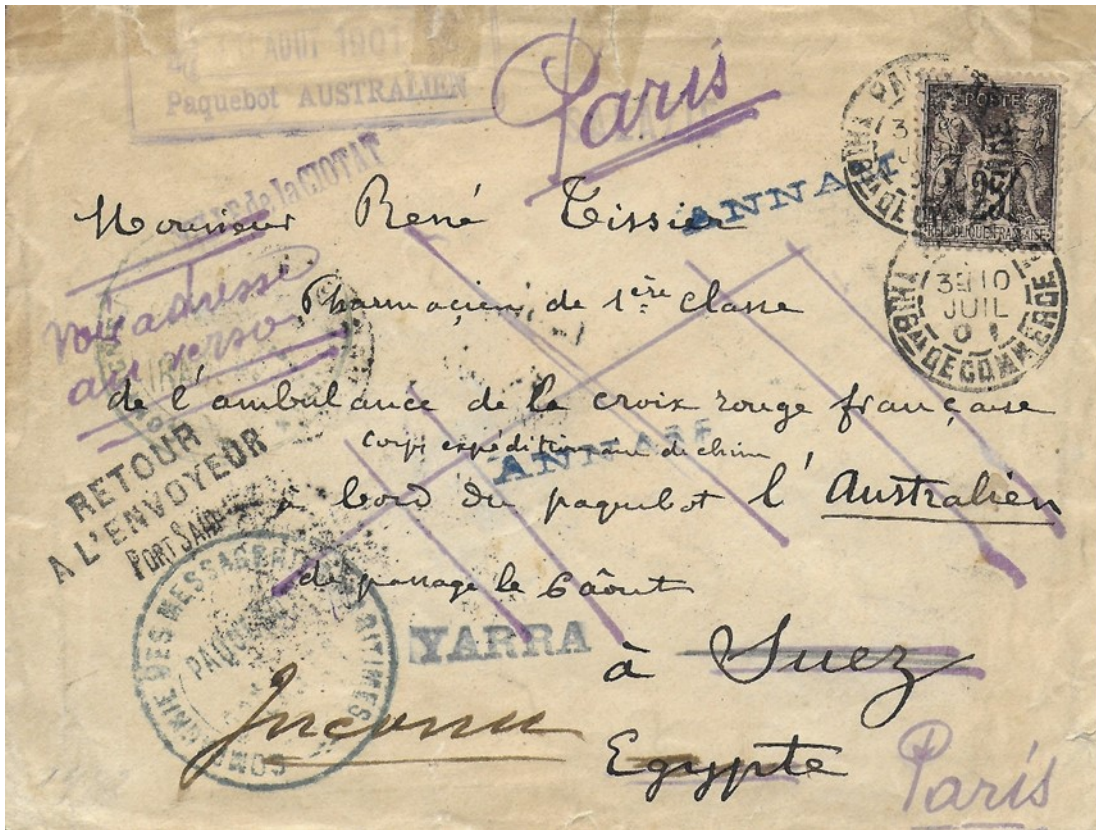 AOUT 1901
Paquebot AUSTRALIEN
Paris
de la CIOTAT
ANNAM
POSTE
25
REPUBLIQUE FRANÇAISE
3E 10
JUIL
01
DE COMMERCE
Monsieur René Tissier
Voir adresse
au verso
Pharmacien de 1ère classe
de l'ambulance de la croix rouge française
corps expéditionnaire de chine
ANNAM
RETOUR
A L'ENVOYEUR
PORT SAID
à bord du paquebot l'Australien
de passage le 6 âout
COMPAGNIE DES MESSAGERIES MARITIMES
YARRA
à Suez
Inconnu
Egypte
Paris